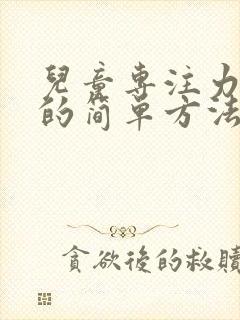 兒童專注力
的简单方法
貪欲後的救贖